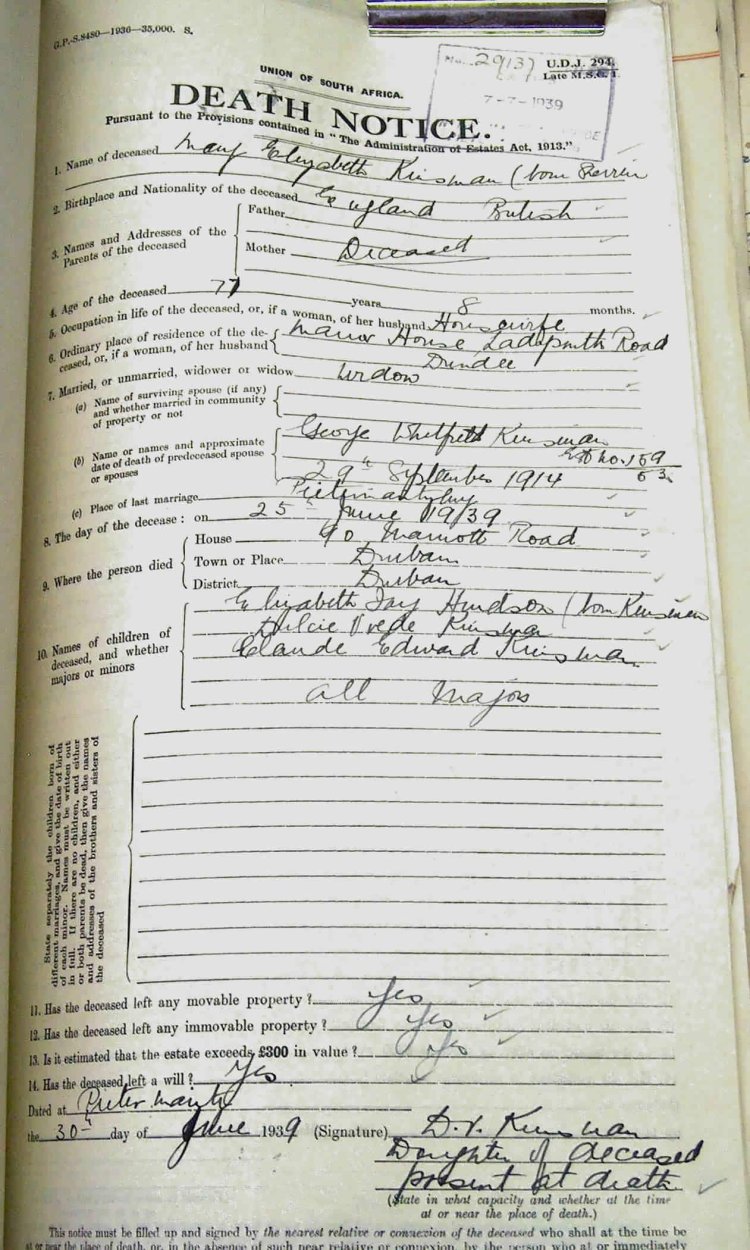 G.P.-S.8480—1936—35,000. S.
No. 29137
U.D.J. 294.
Late M.S.C. 1.
7-7-1939
UNION OF SOUTH AFRICA.
DEATH NOTICE.
Pursuant to the Provisions contained in "The Administration of Estates Act, 1913."
1. Name of deceased Mary Elizabeth Kinsman (born
2. Birthplace and Nationality of the deceased England British
3. Names and Addresses of the Parents of the deceased
Father
Mother Deceased
4. Age of the deceased 77 years 8 months.
5. Occupation in life of the deceased, or, if a woman, of her husband Housewife
6. Ordinary place of residence of the de-
ceased, or, if a woman, of her husband
Manor House Ladysmith Road
Dundee
7. Married, or unmarried, widower or widow Widow
(a) Name of surviving spouse (if any)
and whether married in community
of property or not
(b) Name or names and approximate
date of death of predeceased spouse
or spouses
George Kinsman
Est No. 159
63
29th September 1914
(c) Place of last marriage Pietermaritzburg
8. The day of the decease : on 25 June 1939
9. Where the person died
House 90 Marriott Road
Town or Place Durban
District Durban
10. Names of children of
deceased, and whether
majors or minors
Elizabeth Joy Hudson (born Kinsman
Dulcie Kinsman
Claude Edward Kinsman
all Majors
State separately the children born of
different marriages, and give the date of birth
of each minor. Names must be written out
in full. If there are no children, and either
or both parents be dead, then give the names
and addresses of the brothers and sisters of
the deceased
11. Has the deceased left any movable property ? Yes
12. Has the deceased left any immovable property ? Yes
13. Is it estimated that the estate exceeds £300 in value ? Yes
14. Has the deceased left a will ? Yes
Dated at
the 30th day of June 1939 (Signature) D.V. Kinsman
Daughter of deceased
present at death
(State in what capacity and whether at the time
at or near the place of death.)
This notice must be filled up and signed by the nearest relative or connexion of the deceased who shall at the time be
at or near the place of death, or, in the absence of such near relative or connexion, by the person who at or immediately